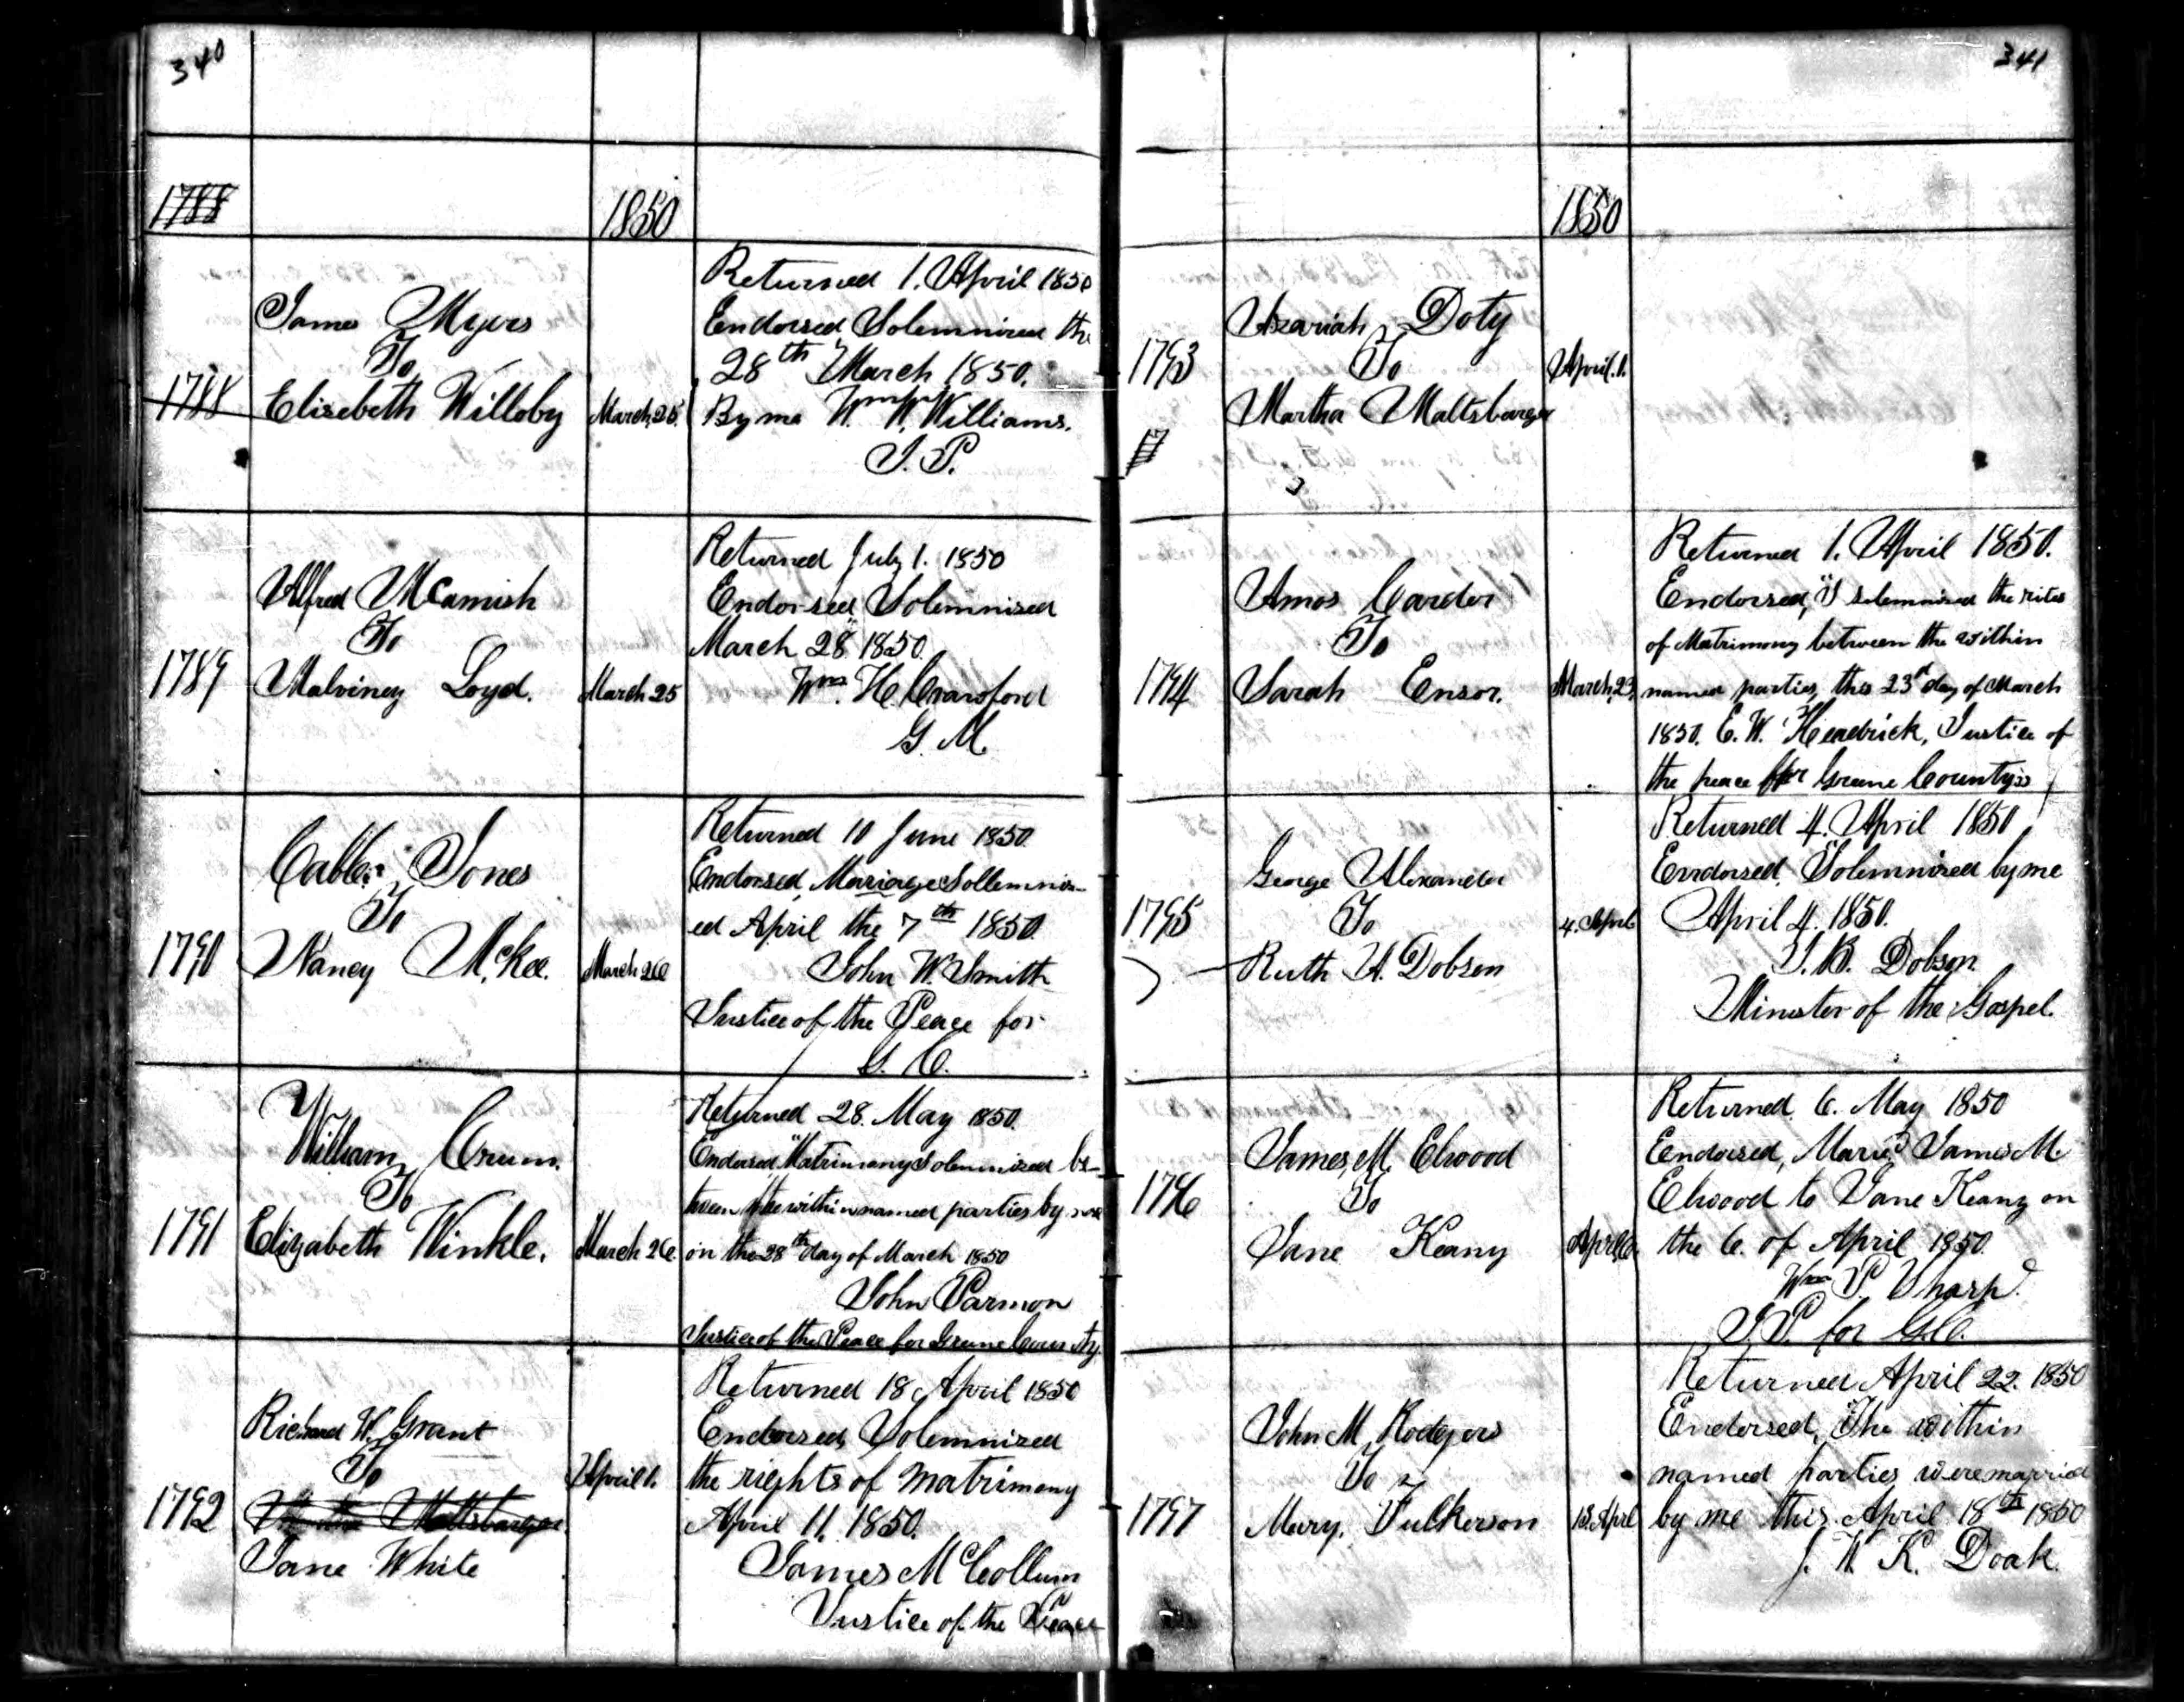 340
1788
1850
James Myers
To
1788 Elisebeth Willoby March 25.
Returned 1. April 1850
Endorsed Solemnized the
28th March 1850.
By me W. W. Williams.
J. P.
Alfred McAmish
To
1789 Malviney Loyd. March 25
Returned July 1. 1850
Endorsed Solemnized
March 28. 1850.
Wm. H. Crawford
G. M.
Cable Jones
To
1790 Nancy McKee. March 26
Returned 10 June 1850
Endorsed, Mariage Sollemniz-
ed April the 7th 1850.
John W. Smith
Justice of the Peace for
G. C.
William Crum.
To
1791 Elizabeth Winkle. March 26.
Returned 28. May 1850.
Endorsed, "Matrimony Solemnized be-
tween the within named parties by me
on the 28th day of March 1850
John Parmon
Justice of the Peace for Greene County.
Richard W. Grant
To
April 1.
1792 Maltsbarger
Jane White
Returned 18 April 1850
Endorsed, Solemnized
the rights of matrimony
April 11. 1850.
James McCollum
Justice of the Peace
341
1850
Azariah Doty
1793 To April. 1.
Martha Maltsbarger
17
Amos Carder
To
1794 Sarah Ensor. March, 23.
Returned 1. April 1850.
Endorsed, "I solemnized the rites
of Matrimony between the within
named parties, this 23d day of March
1850. E. W. Headrick, Justice of
the peace for Greene County"
George Alexander
1795 To 4. April
Ruth A. Dobson
Returned 4. April 1850
Endorsed. "Solemnized by me
April 4. 1850.
J. B. Dobson.
Minister of the Gospel.
James, M. Elwood
1796 To
Jane Keany April 6.
Returned, 6. May 1850
Endorsed, Maried James M.
Elwood to Jane Keany on
the 6. of April 1850.
Wm P. Sharp.
J. P. for G. C.
John M. Rodgers
To
1797 Mary. Fulkerson 18. April
Returned April 22. 1850
Endorsed, "The within
named parties were married
by me this. April 18th 1850
J. W. K. Doak.